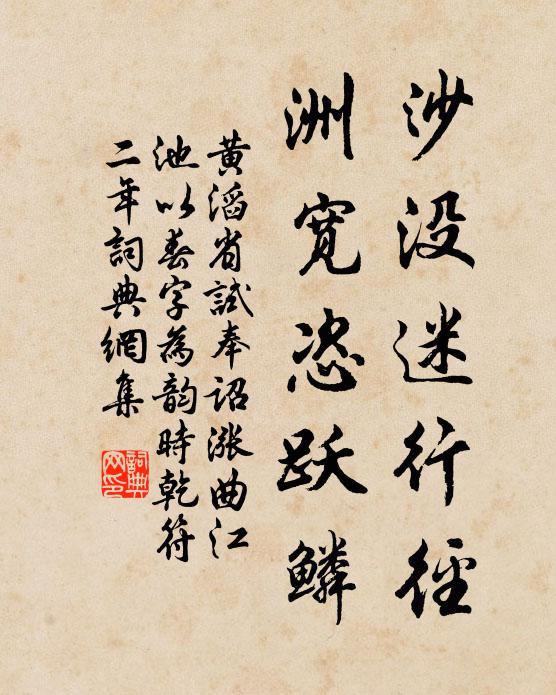 沙没迷行径
洲宽恣跃鳞
黄滔省試奉诏涨曲江
池以春字為韵時乾符
二年詞典網集
詞典
网印